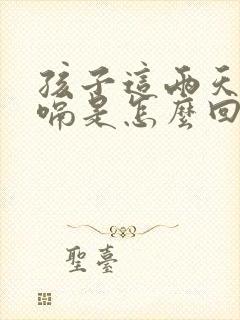 孩子這兩天
嗝是怎麼回
聖臺